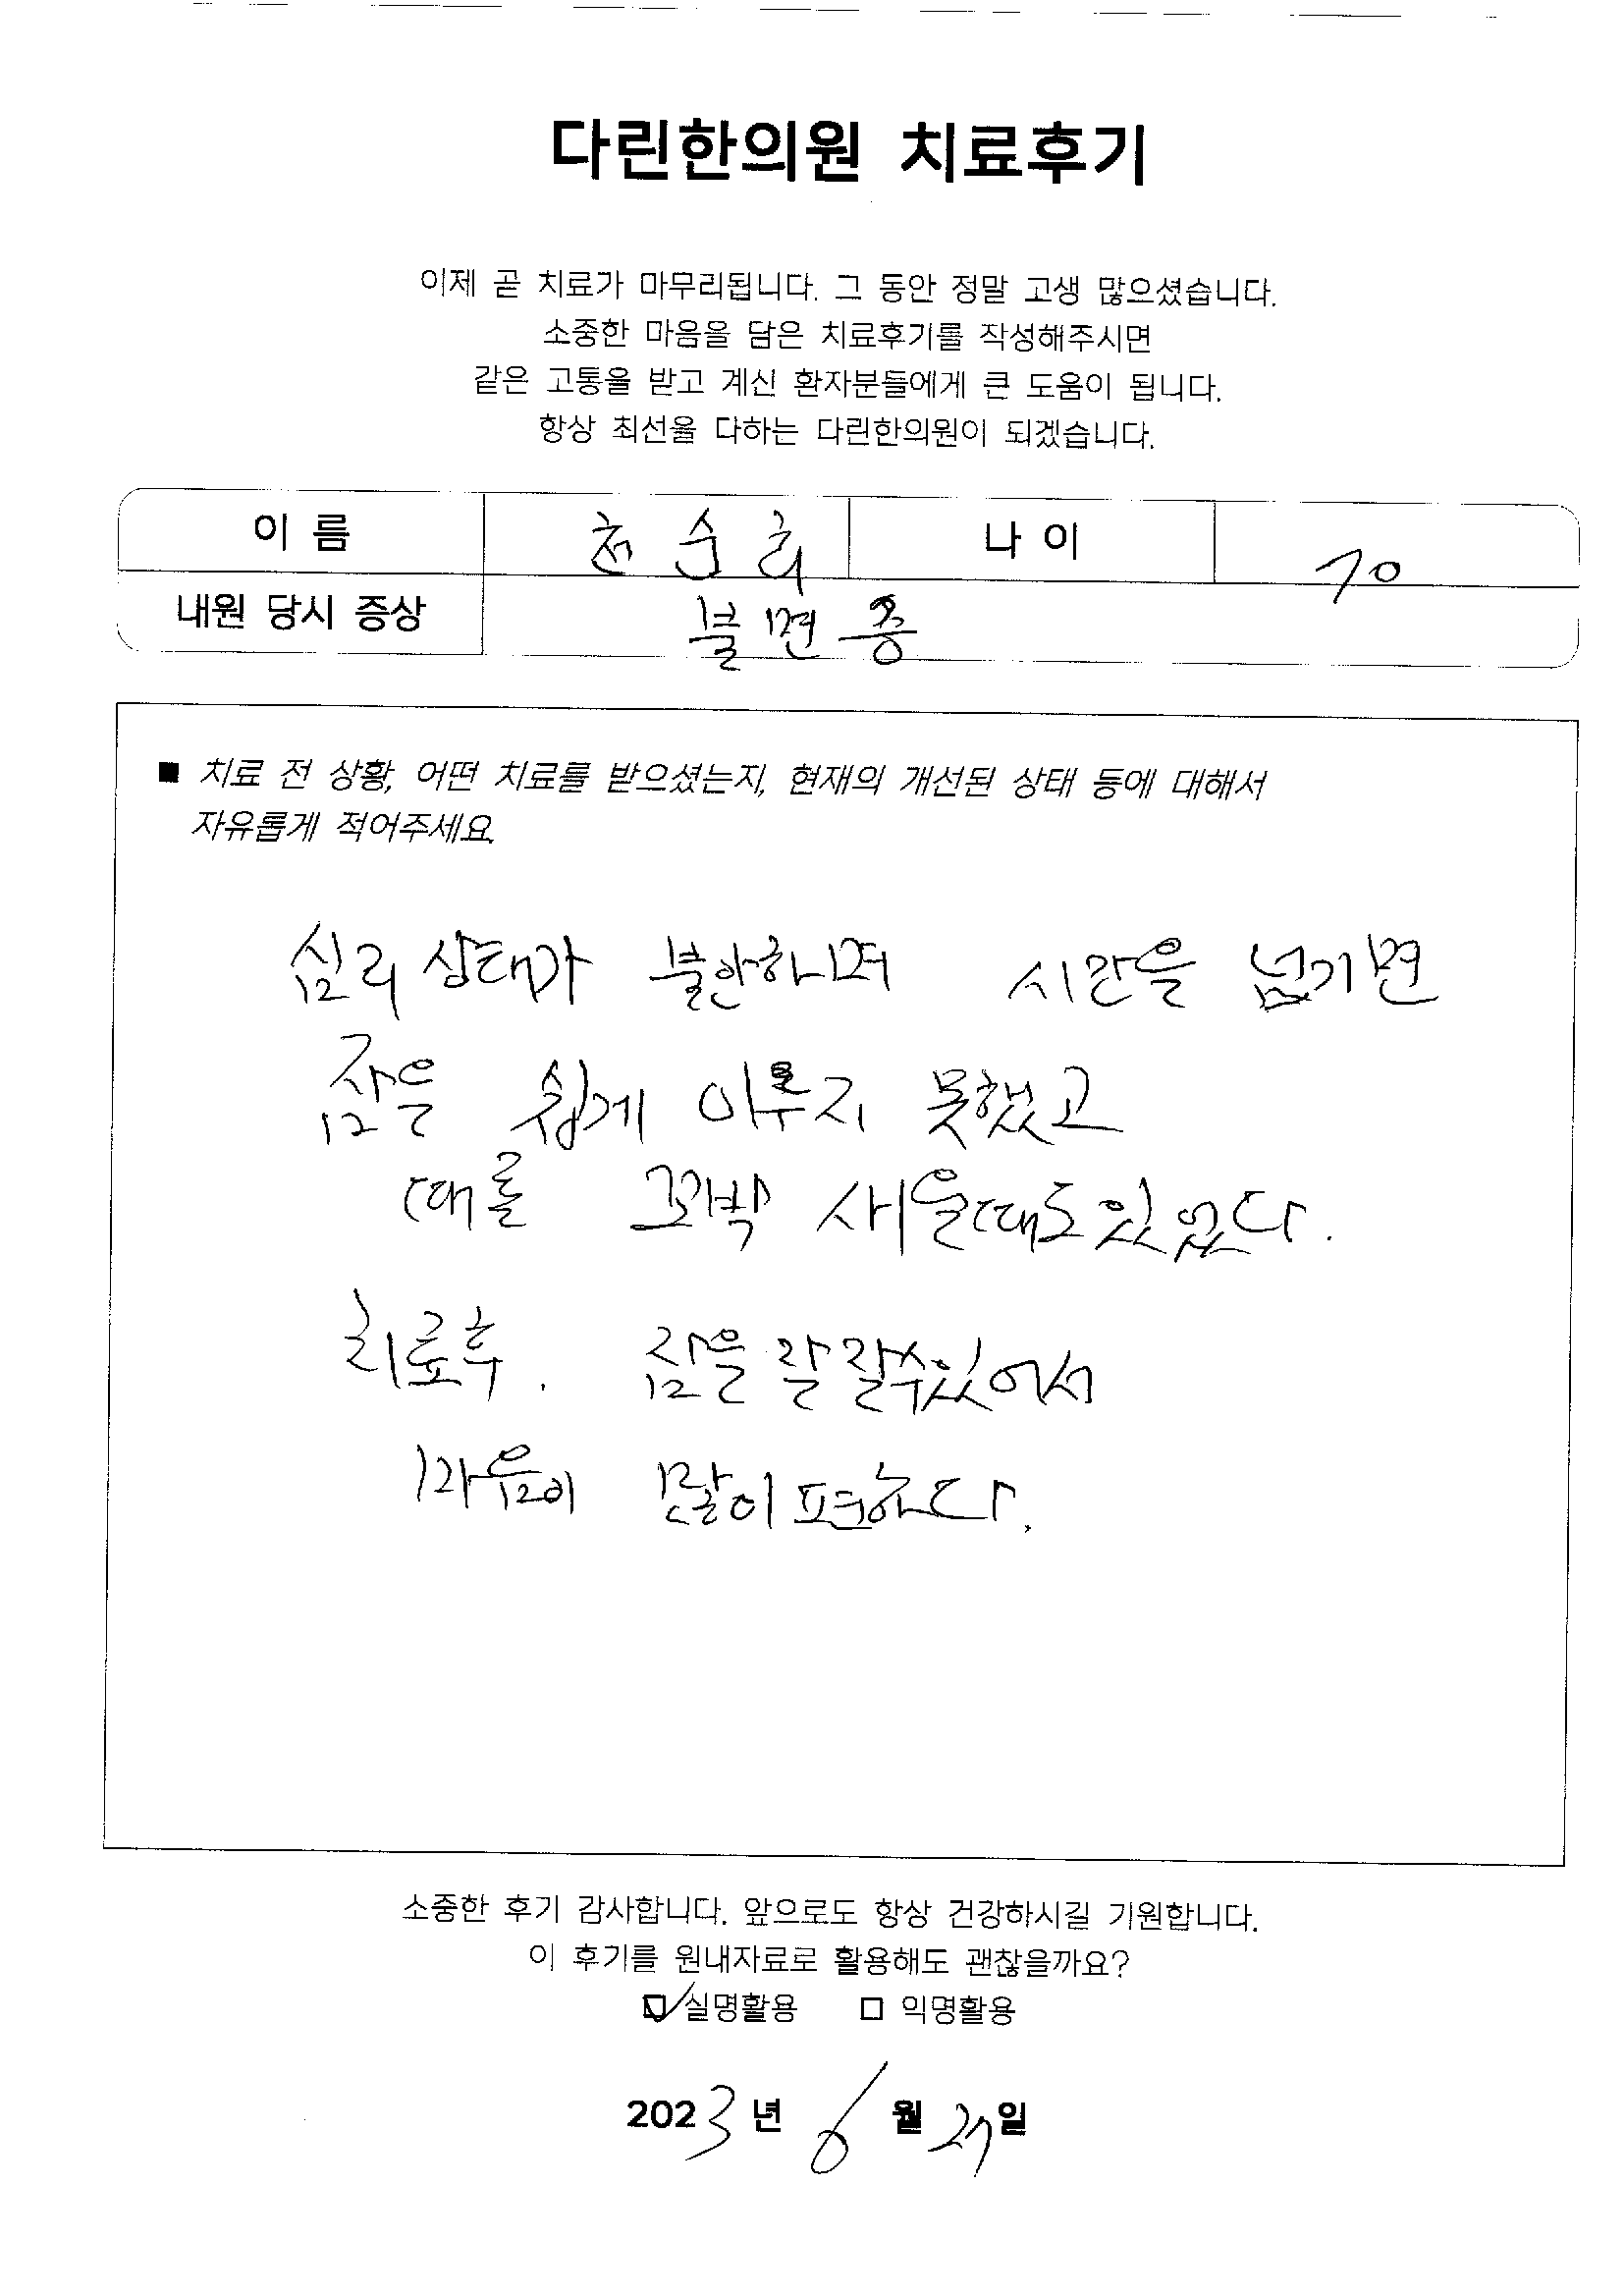 다린한의원 치료후기
이제 곧 치료가 마무리됩니다. 그 동안 정말 고생 많으셨습니다.
소중한 마음을 담은 치료후기를 작성해주시면
같은 고통을 받고 계신 환자분들에게 큰 도움이 됩니다.
항상 최선을 다하는 다린한의원이 되겠습니다.
이 름 천순희 나 이 70
내원 당시 증상 불면증
■ 치료 전 상황, 어떤 치료를 받으셨는지, 현재의 개선된 상태 등에 대해서
자유롭게 적어주세요.
심리 상태가 불안하며 시간을 넘기면
잠을 쉽게 이루지 못했고
때를 꼬박 새울때도있었다.
치료후. 잠을 잘 잘수있어서
마음이 많이 편하다.
소중한 후기 감사합니다. 앞으로도 항상 건강하시길 기원합니다.
이 후기를 원내자료로 활용해도 괜찮을까요?
☑ 실명활용 □ 익명활용
2023년 6월 27일